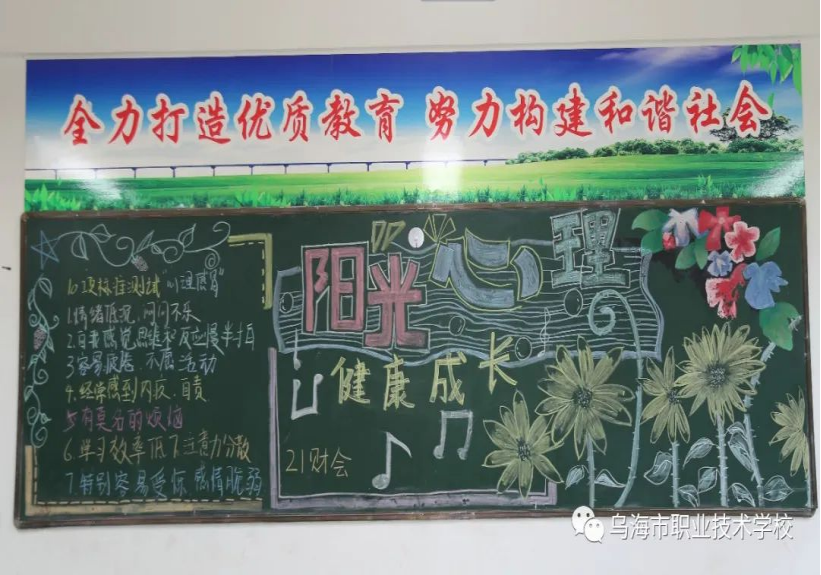 全力打造优质教育 努力构建和谐社会
阳光心理
健康成长
21财会
10项标准测试"心理感冒"
1.情绪低沉、闷闷不乐
2.自我感觉思维和反应慢半拍
3容易疲惫、不愿活动
4.经常感到内疚、自责
5有莫名的烦恼
6学习效率低下注意力分散
7.特别容易受伤感情脆弱
乌海市职业技术学校